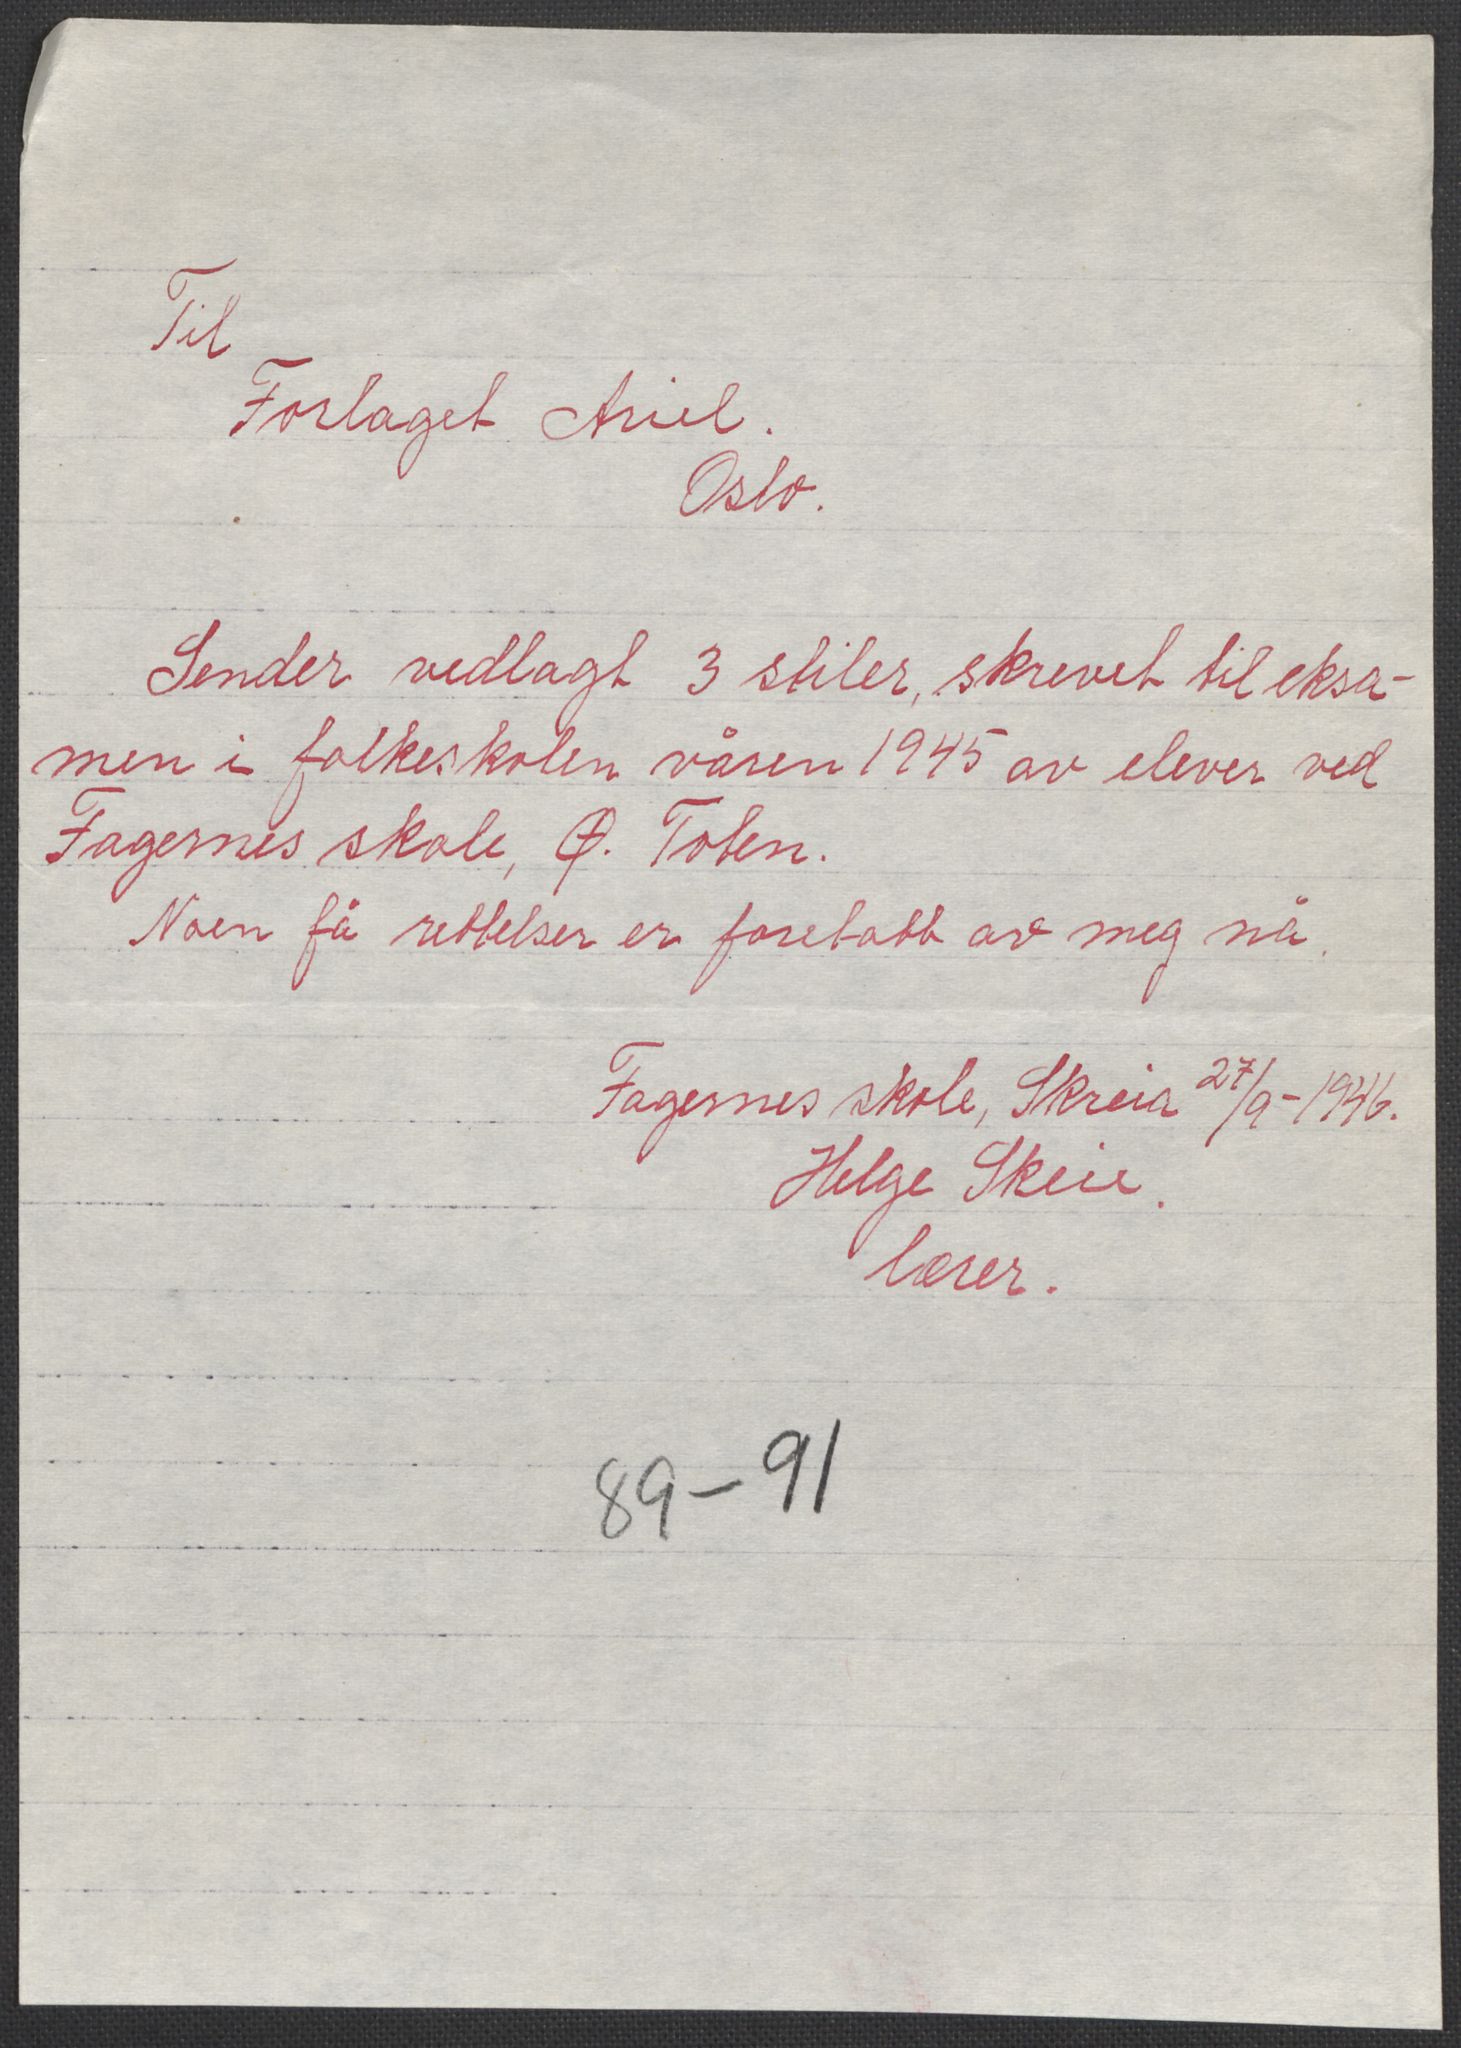 Til
Forlaget Ariel.
Oslo.
Sender vedlagt 3 stiler, skrevet til eksa-
men i folkeskolen våren 1945 av elever ved
Fagernes skole, Ø. Toten.
Noen få rettelser er foretatt av meg nå.
Fagernes skole, Skreia 27/9-1946.
Helge Skeie.
lærer.
89-91